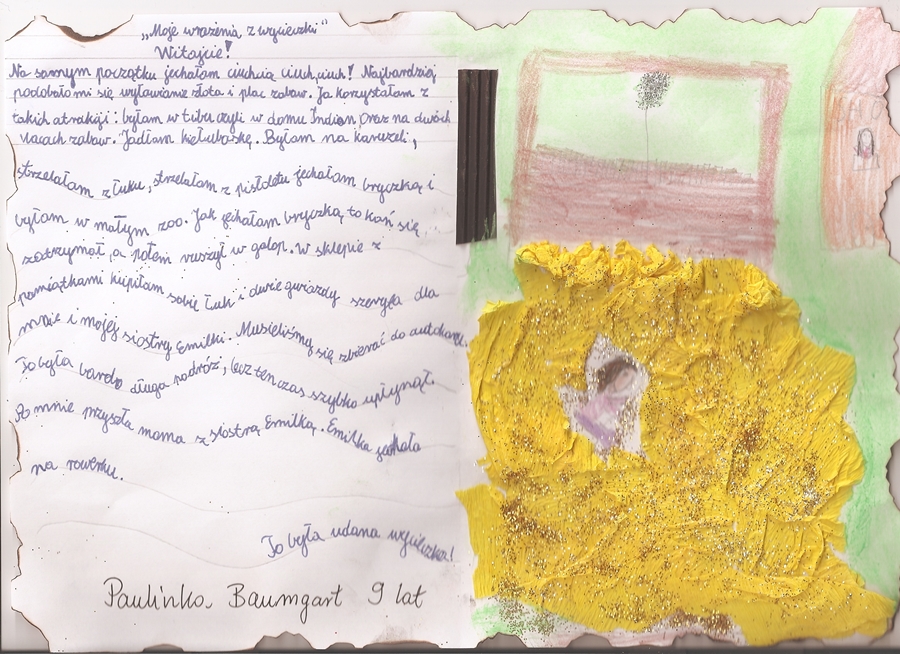 „Moje wrażenia z wycieczki"
Witajcie!
Na samym początku jechałam ciuchcią ciuch, ciuch! Najbardziej
podobało mi się wyławianie złota i plac zabaw. Ja korzystałam z
takich atrakcji: byłam w tibi czyli w domu Indian, oraz na dwóch
placach zabaw. Jadłam kiełbaskę. Byłam na karuzeli,
strzelałam z łuku, strzelałam z pistoletu jechałam bryczką i
byłam w małym zoo. Jak jechałam bryczką to koń się
zatrzymał, a potem ruszył w galop. W sklepie z
pamiątkami kupiłam sobie łuk i dwie gwiazdy szeryfa dla
mnie i mojej siostry Emilki. Musieliśmy się zbierać do autokaru.
To była bardo długa podróż, lecz ten czas szybko upłynął.
Po mnie przyszła mama z siostrą Emilką. Emilka jechała
na rowerku.
To była udana wycieczka!
Paulinka Baumgart 9 lat